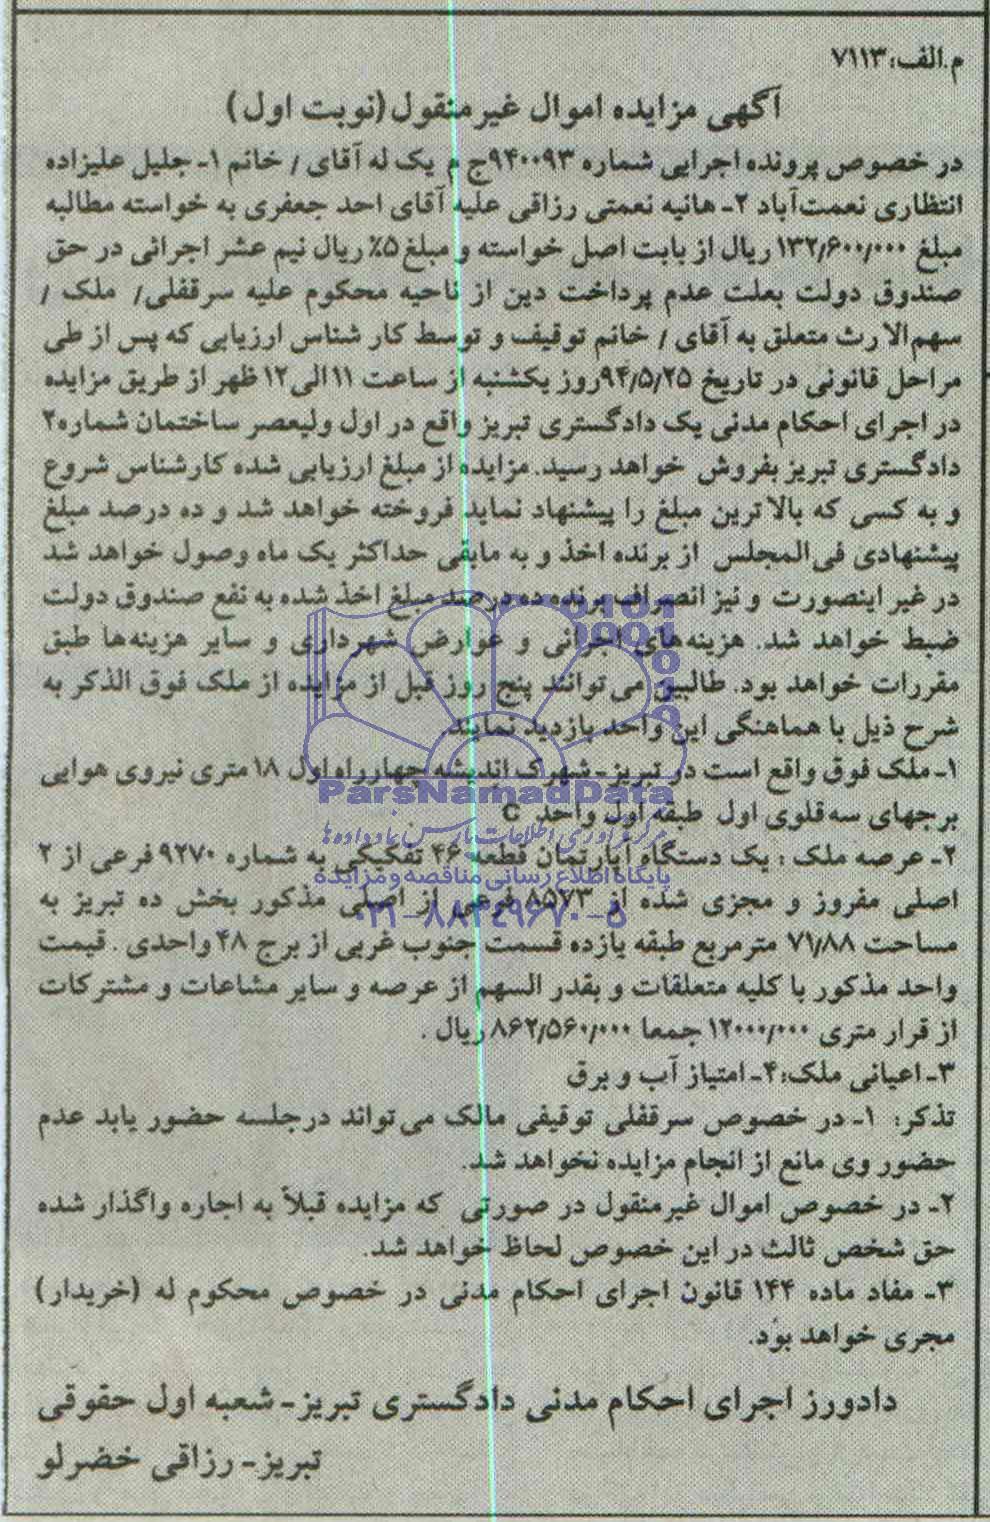 م.الف:۷۱۱۳
آگهی مزایده اموال غیرمنقول(نوبت اول)
در خصوص پرونده اجرایی شماره ۹۴۰۰۹۳ج م یک له آقای / خانم ۱- جلیل علیزاده
انتظاری نعمت‌آباد ۲- هانیه نعمتی رزاقی علیه آقای احد جعفری به خواسته مطالبه
مبلغ ۱۳۲/۶۰۰/۰۰۰ ریال از بابت اصل خواسته و مبلغ ۵٪ ریال نیم عشر اجرائی در حق
صندوق دولت بعلت عدم پرداخت دین از ناحیه محکوم علیه سرقفلی/ ملک /
سهم‌الارث متعلق به آقای / خانم توقیف و توسط کار شناس ارزیابی که پس از طی
مراحل قانونی در تاریخ ۹۴/۵/۲۵روز یکشنبه از ساعت ۱۱الی۱۲ ظهر از طریق مزایده
در اجرای احکام مدنی یک دادگستری تبریز واقع در اول ولیعصر ساختمان شماره۲
دادگستری تبریز بفروش خواهد رسید. مزایده از مبلغ ارزیابی شده کارشناس شروع
و به کسی که بالاترین مبلغ را پیشنهاد نماید فروخته خواهد شد و ده درصد مبلغ
پیشنهادی فی‌المجلس از برنده اخذ و به مابقی حداکثر یک ماه وصول خواهد شد
در غیر اینصورت و نیز انصراف برنده ده درصد مبلغ اخذ شده به نفع صندوق دولت
ضبط خواهد شد. هزینه‌های اجرائی و عوارض شهرداری و سایر هزینه‌ها طبق
مقررات خواهد بود. طالبین می‌توانند پنج روز قبل از مزایده از ملک فوق الذکر به
شرح ذیل با هماهنگی این واحد بازدید نمایند.
۱- ملک فوق واقع است در تبریز- شهرک اندیشه چهارراه اول ۱۸ متری نیروی هوایی
برجهای سه‌قلوی اول طبقه اول واحد C
ParsNamadData
مرکز فرآوری اطلاعات پارس نماد داده‌ها
۲- عرصه ملک : یک دستگاه آپارتمان قطعه ۴۶ تفکیکی به شماره ۹۲۷۰ فرعی از ۲
پایگاه اطلاع رسانی مناقصه و مزایده
اصلی مفروز و مجزی شده از ۸۵۷۳ فرعی از اصلی مذکور بخش ده تبریز به
۰۲۱-۸۸۳۴۹۶۷۰-۵
مساحت ۷۱/۸۸ مترمربع طبقه یازده قسمت جنوب غربی از برج ۴۸ واحدی . قیمت
واحد مذکور با کلیه متعلقات و بقدر السهم از عرصه و سایر مشاعات و مشترکات
از قرار متری ۱۲۰۰۰/۰۰۰ جمعا ۸۶۲/۵۶۰/۰۰۰ ریال .
۳- اعیانی ملک:۴- امتیاز آب و برق
تذکر: ۱- در خصوص سرقفلی توقیفی مالک می‌تواند درجلسه حضور یابد عدم
حضور وی مانع از انجام مزایده نخواهد شد.
۲- در خصوص اموال غیرمنقول در صورتی که مزایده قبلاً به اجاره واگذار شده
حق شخص ثالث در این خصوص لحاظ خواهد شد.
۳- مفاد ماده ۱۴۴ قانون اجرای احکام مدنی در خصوص محکوم له (خریدار)
مجری خواهد بود.
دادورز اجرای احکام مدنی دادگستری تبریز- شعبه اول حقوقی
تبریز- رزاقی خضرلو